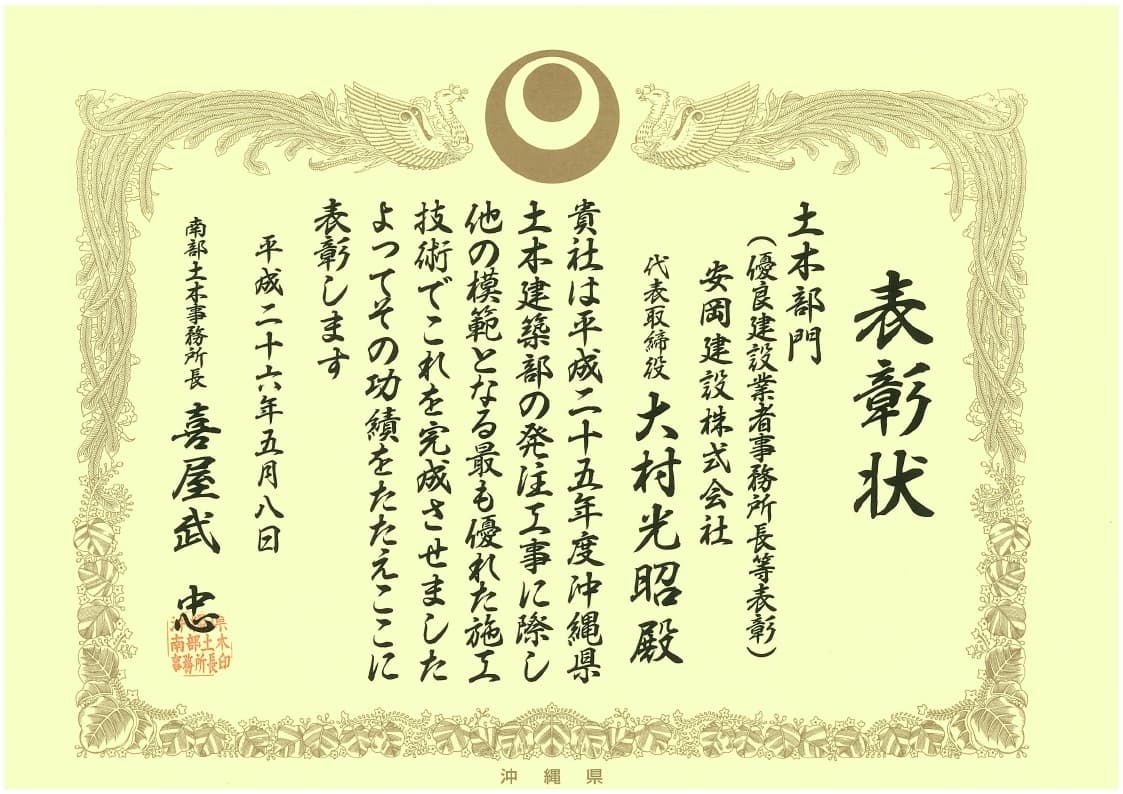 表彰状
土木部門
(優良建設業者事務所長等表彰)
安岡建設株式会社
代表取締役 大村光昭殿
貴社は平成二十五年度沖縄県
土木建築部の発注工事に際し
他の模範となる最も優れた施工
技術でこれを完成させました
よってその功績をたたえここに
表彰します
平成二十六年五月八日
南部土木事務所長 喜屋武 忠
沖縄県
南部土木
事務所長印
沖縄県